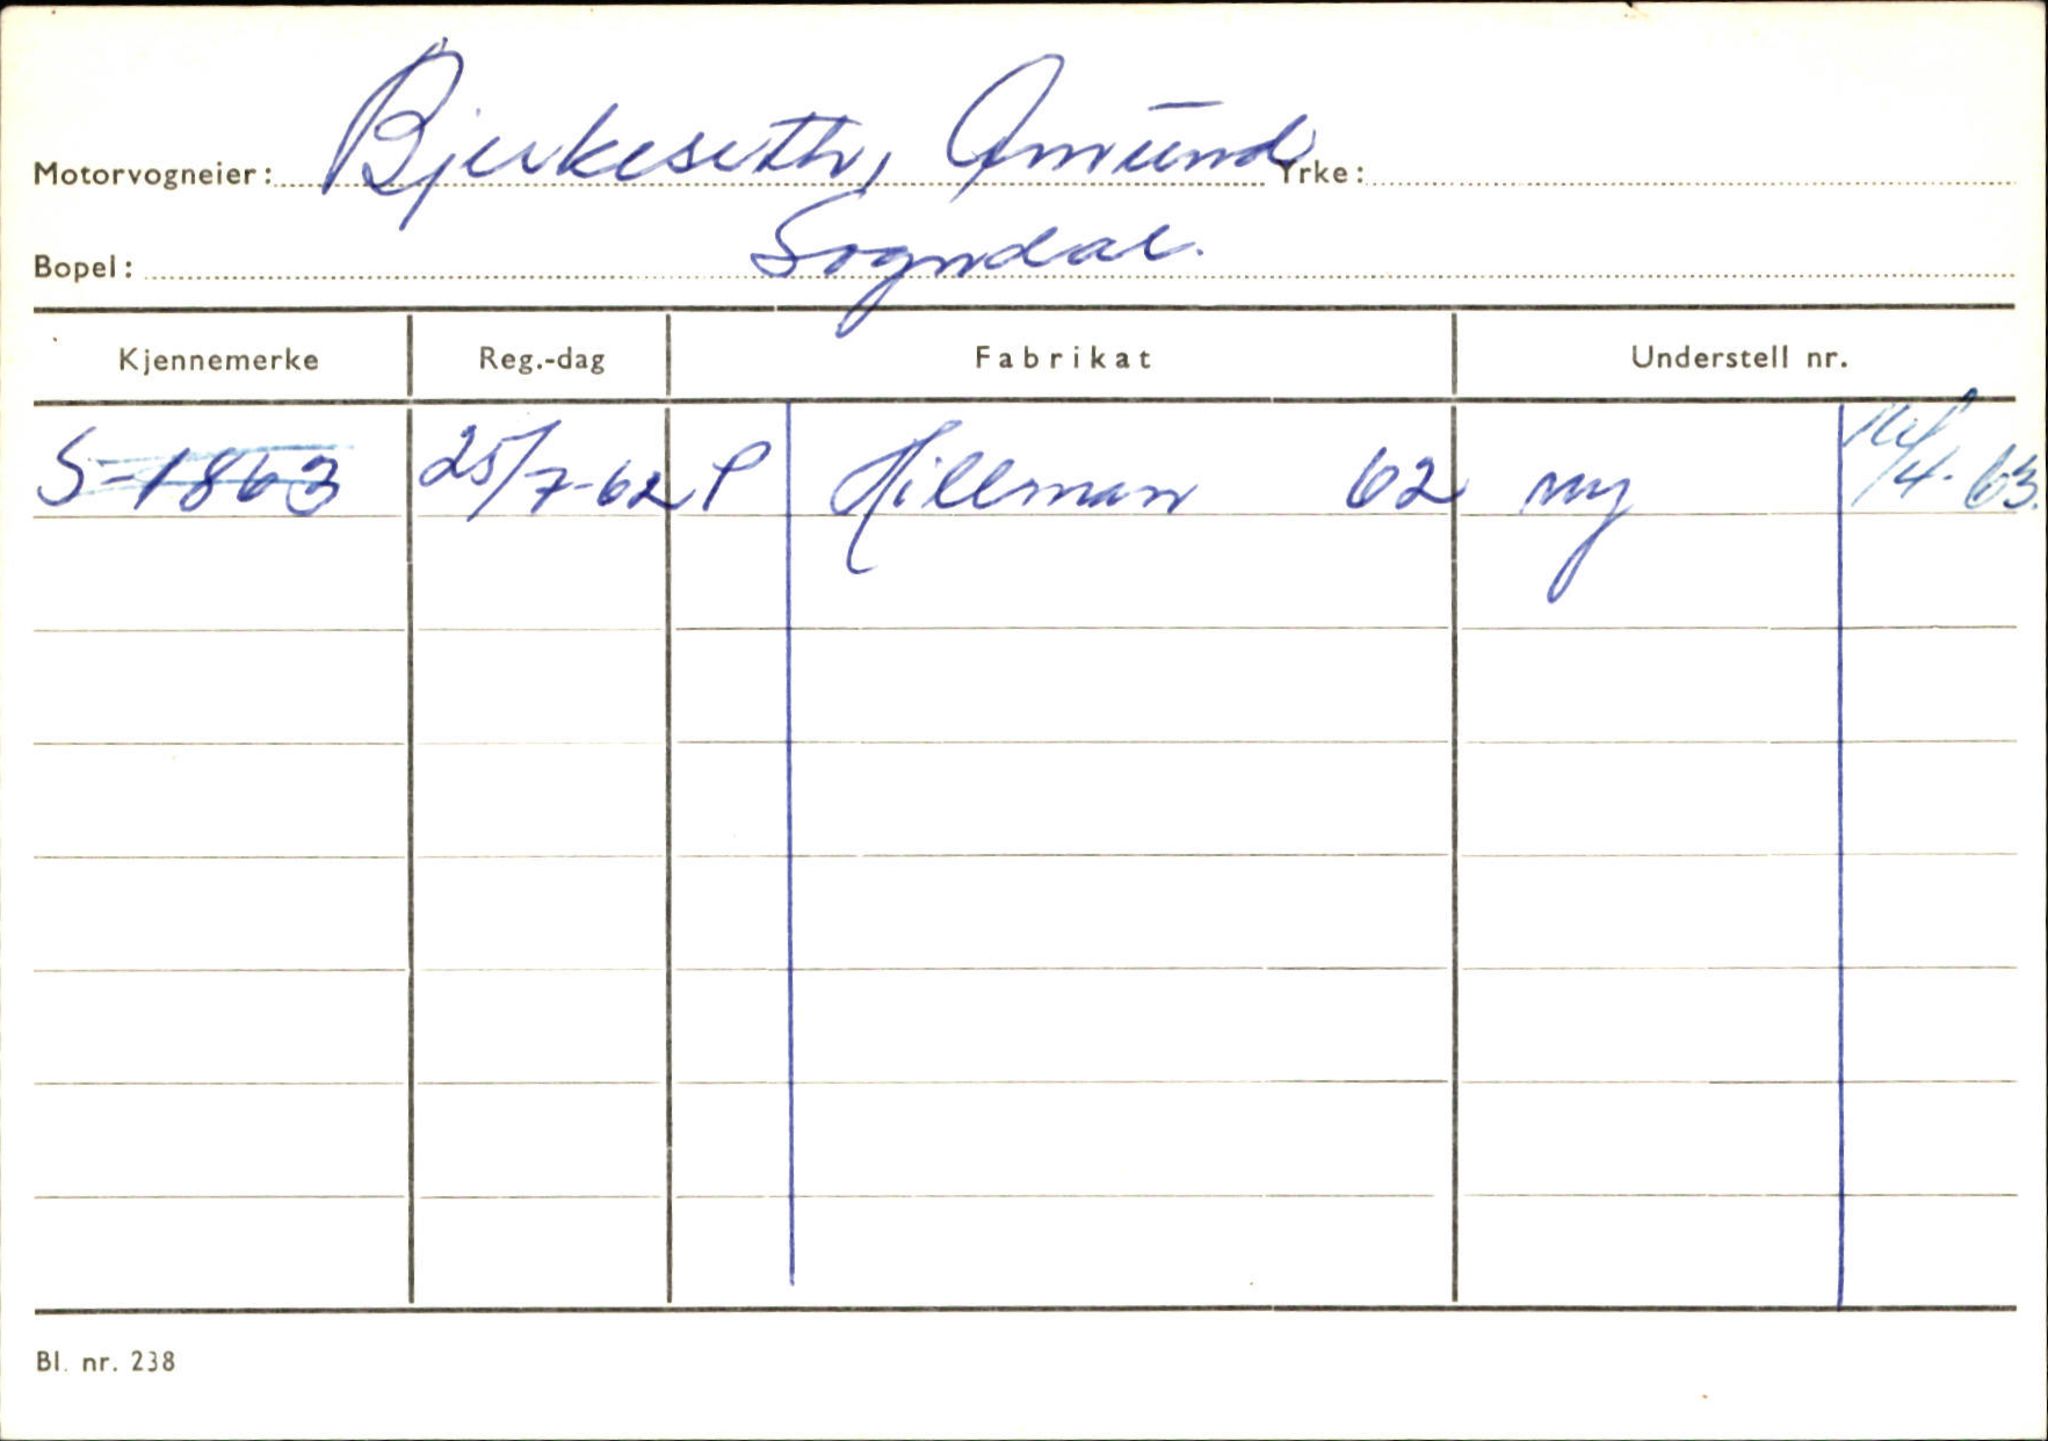 Motorvogneier: Bjerkeseth, Amund Yrke:
Bopel: Sogndal.
Kjennemerke Reg.-dag Fabrikat Understell nr.
S-1863 25/7-62 P Hillman 62 ny /4-63.
Bl. nr. 238